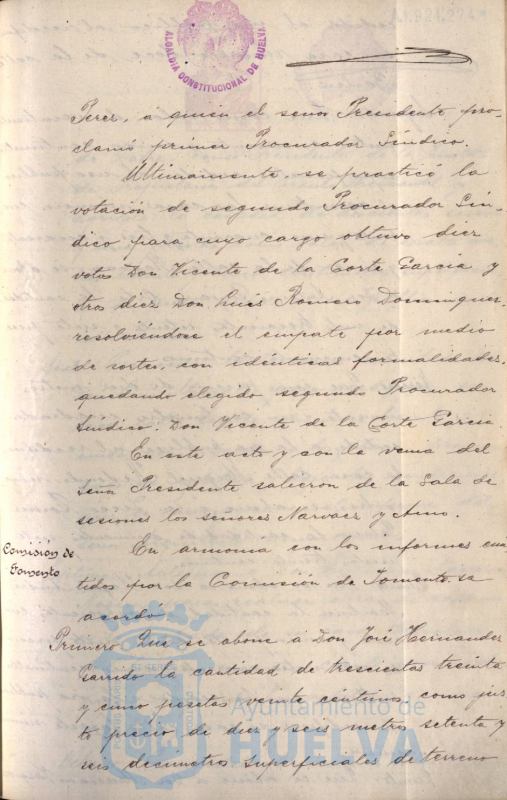 A1.924.274
ALCALDIA CONSTITUCIONAL DE HUELVA
Perez, a quien el señor Presidente pro-
clamó primer Procurador Síndico.
Ultimamente, se practicó la
votación de segundo Procurador Sín-
dico para cuyo cargo obtuvo diez
votos Don Vicente de la Corte Garcia y
otros diez Don Luis Romero Dominguez
resolviéndose el empate por medio
de sorteo, con idénticas formalidades,
quedando elegido segundo Procurador
Síndico: Don Vicente de la Corte Garcia.
En este acto y con la venia del
Señor Presidente salieron de la Sala de
sesiones los señores Narvaez y
Comisión de
Fomento
En armonía con los informes emi-
tidos por la Comisión de Fomento se
acordó
Primero Que se abone á Don José Hernandez
Garrido la cantidad de trescientas treinta
y cinco pesetas veinte céntimos, como jus-
to precio de diez y seis metros setenta y
seis decimetros superficiales de terreno
Ayuntamiento de
HUELVA